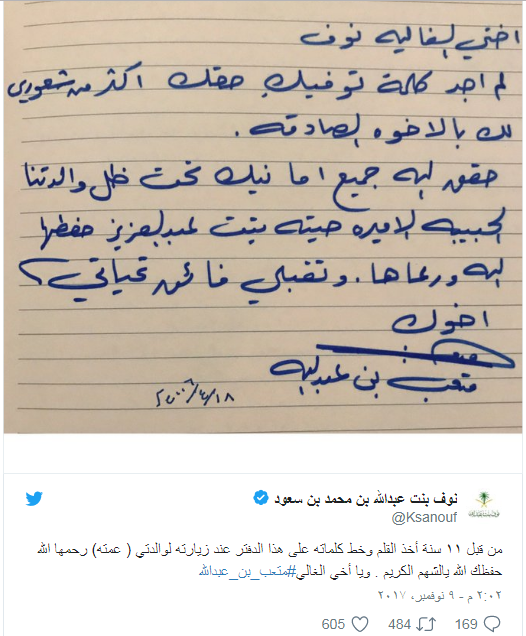 اختي الغاليه نوف
لم اجد كلمة توفيك حقك اكثر من شعوري
لك بالاخوه الصادقه .
حقق الله جميع امانيك تحت ظل والدتنا
الحبيبه الاميره صيته بنت عبدالعزيز حفظها
الله ورعاها . وتقبلي فائق تحياتي
اخوك
متعب بن عبدالله
٢٠٠٦/٤/١٨
نوف بنت عبدالله بن محمد بن سعود
@Ksanouf
من قبل ١١ سنة أخذ القلم وخط كلماته على هذا الدفتر عند زيارته لوالدتي ( عمته) رحمها الله
حفظك الله يالشهم الكريم . ويا أخي الغالي#متعب_بن_عبدالله
٢:٠٢ م - ٩ نوفمبر، ٢٠١٧
169 484 605